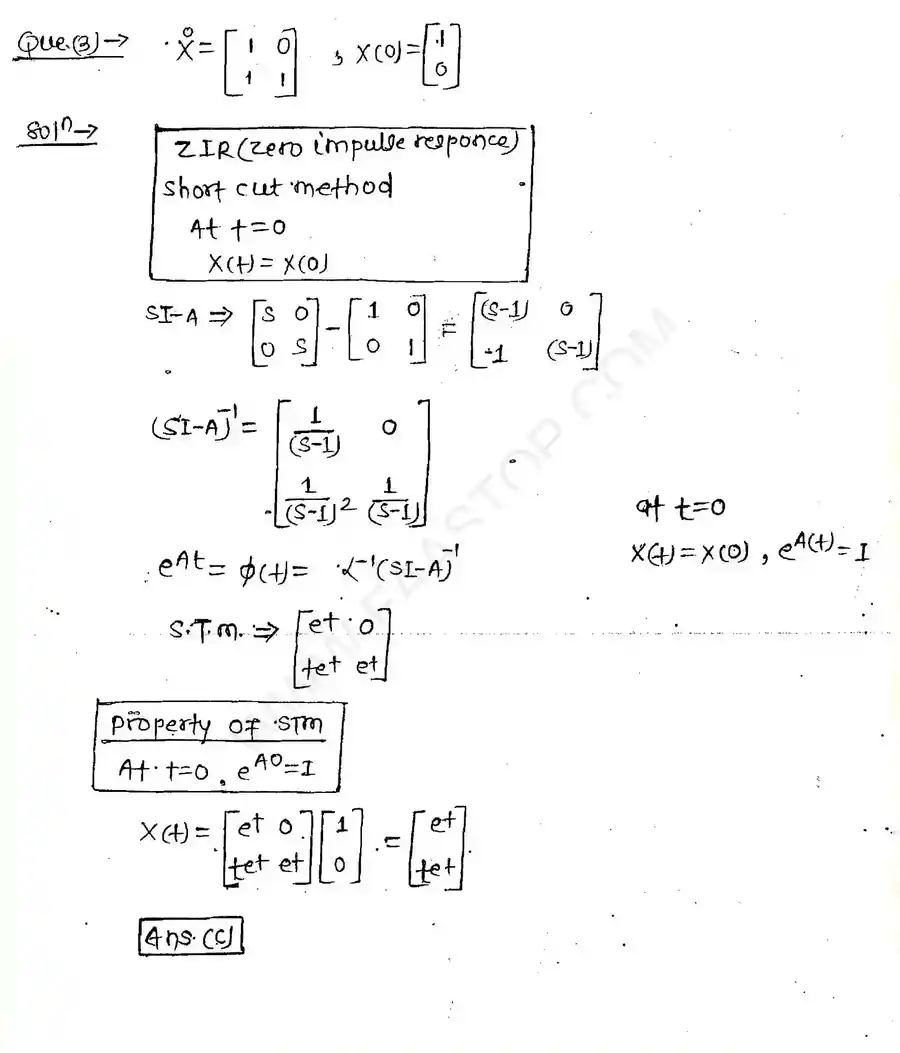 Que.(3)→ Ẋ = [1 0; 1 1] , X(0) = [1; 0]
Soln→
ZIR(zero impulse responce)
Short cut method
At t=0
X(t) = X(0)
SI-A ⇒ [S 0; 0 S] - [1 0; 0 1] = [(S-1) 0; -1 (S-1)]
(SI-A)⁻¹ = [1/(S-1) 0; 1/(S-1)² 1/(S-1)]
at t=0
X(t) = X(0) , e^A(t) = I
e^At = φ(t) = L⁻¹(SI-A)⁻¹
S.T.M. ⇒ [et 0; tet et]
Property OF STM
At t=0 , e^A0 = I
X(t) = [et 0; tet et] [1; 0] = [et; tet]
Ans. (C)
WWW.EASTOP.COM